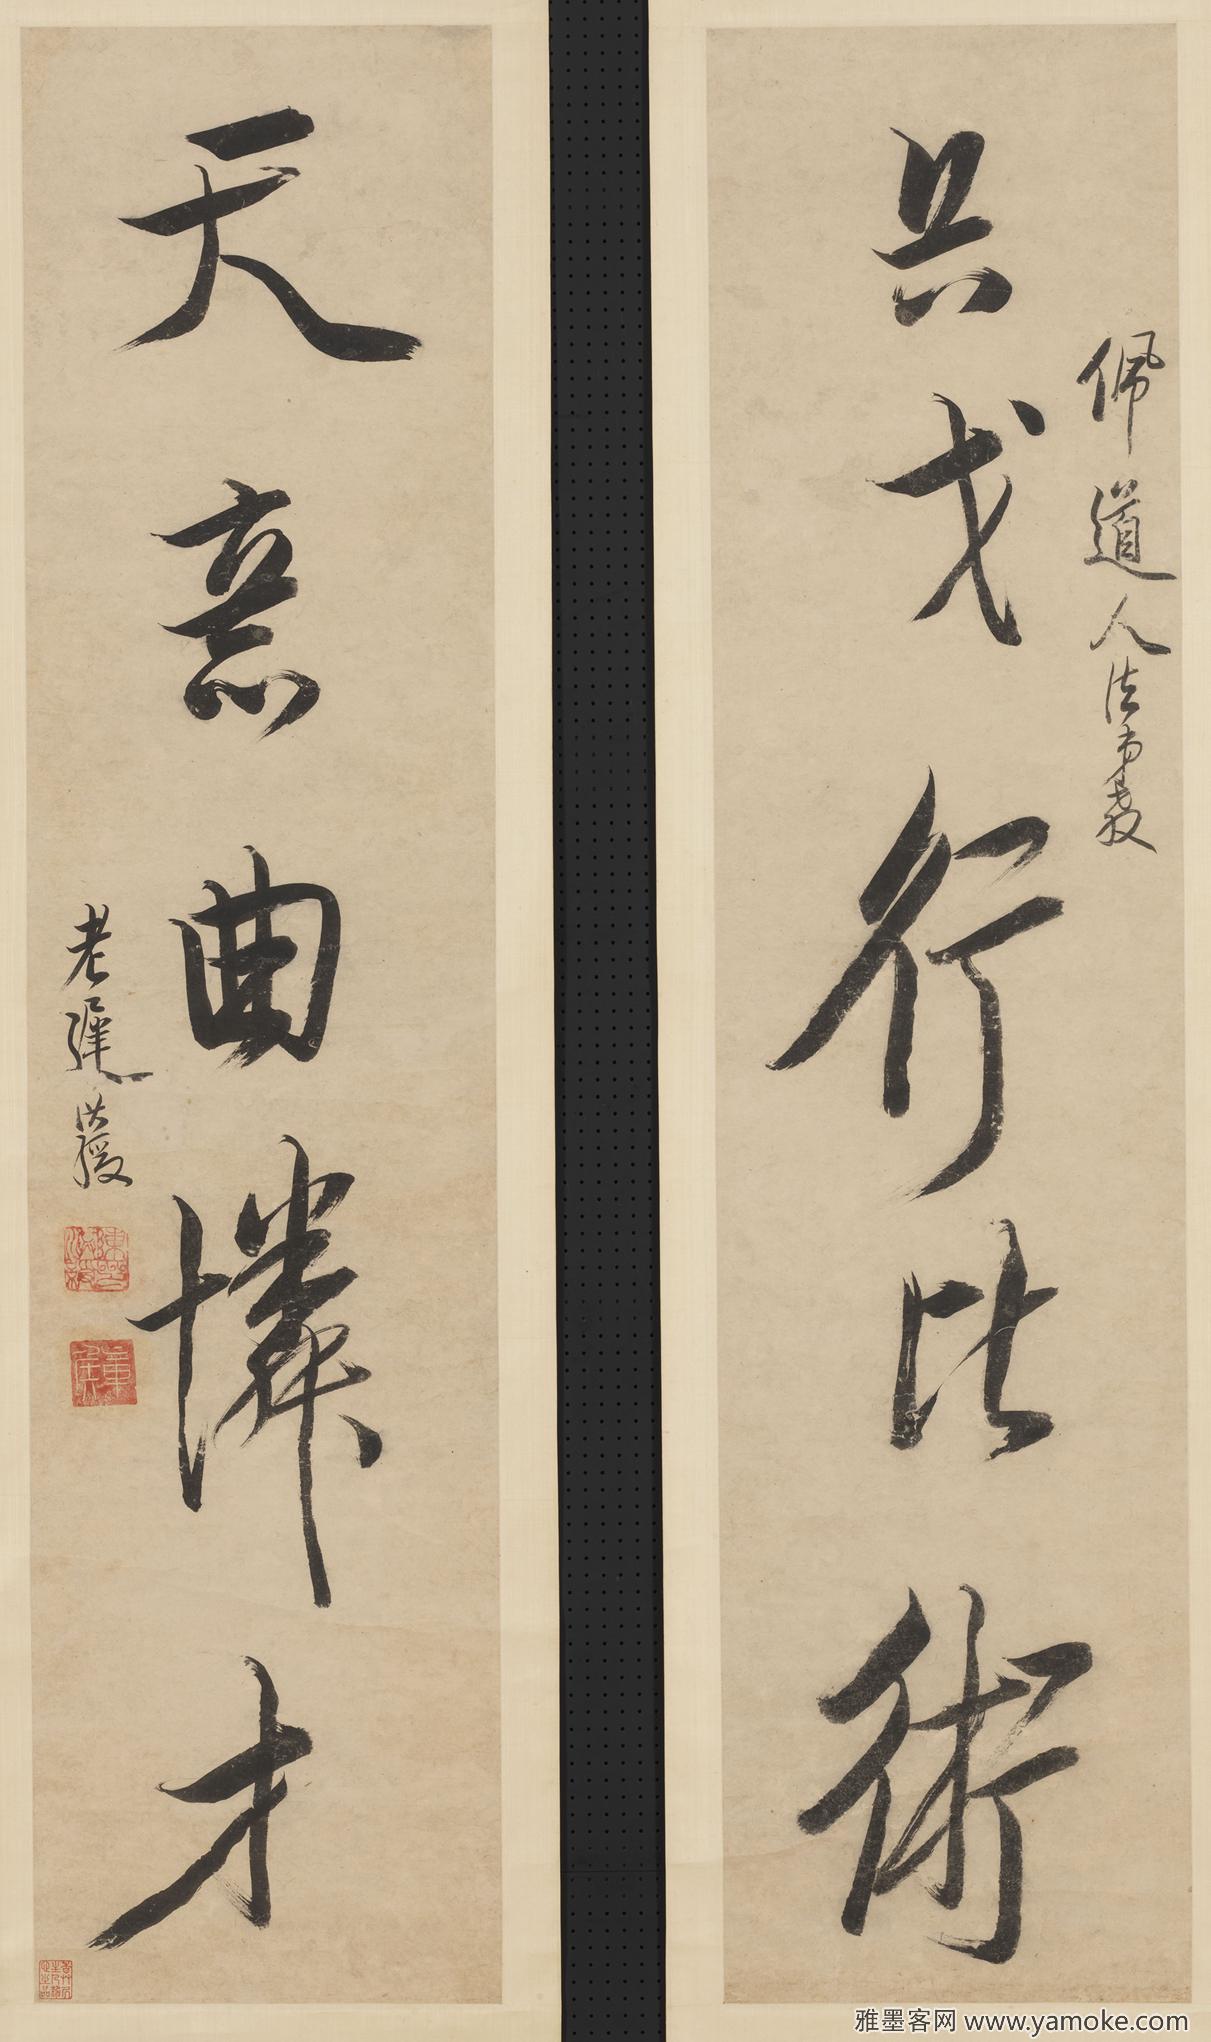 佩道人法弟教
兵戈行此術
天意曲憐才
老遲洪綬
章侯
雅墨客网 www.yamoke.com